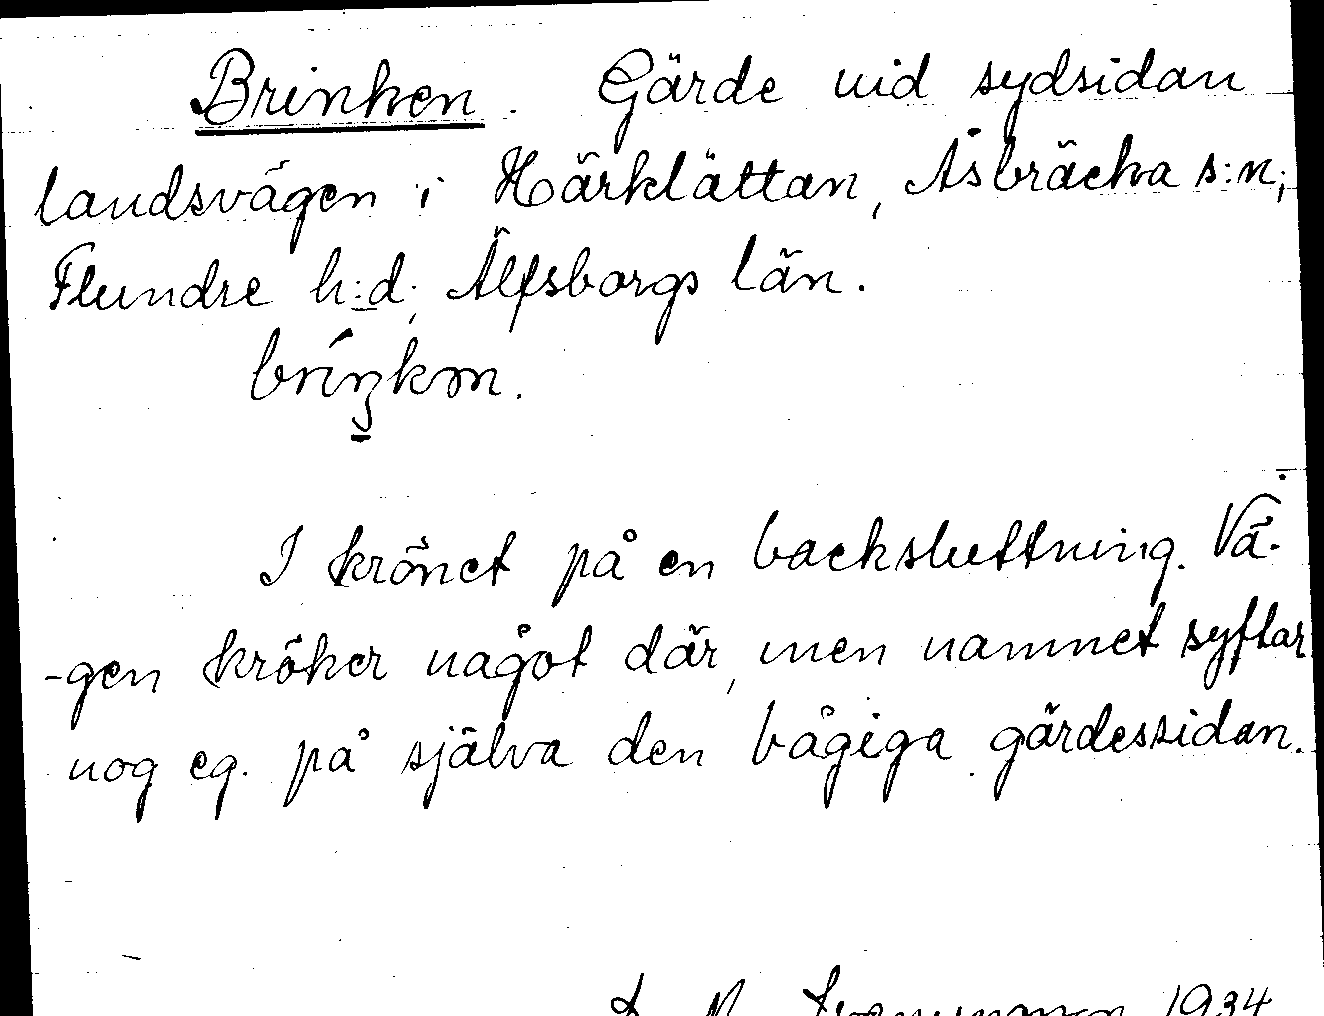 Brinken. Gärde vid sydsidan
landsvägen i Härklättan, Åsbräcka s:n,
Flundre h:d, Älfsborgs län.
I krönet på en backsluttning. Vä-
-gen kröker något där, men namnet syftar
nog eg. på själva den bågiga gärdessidan.
1934